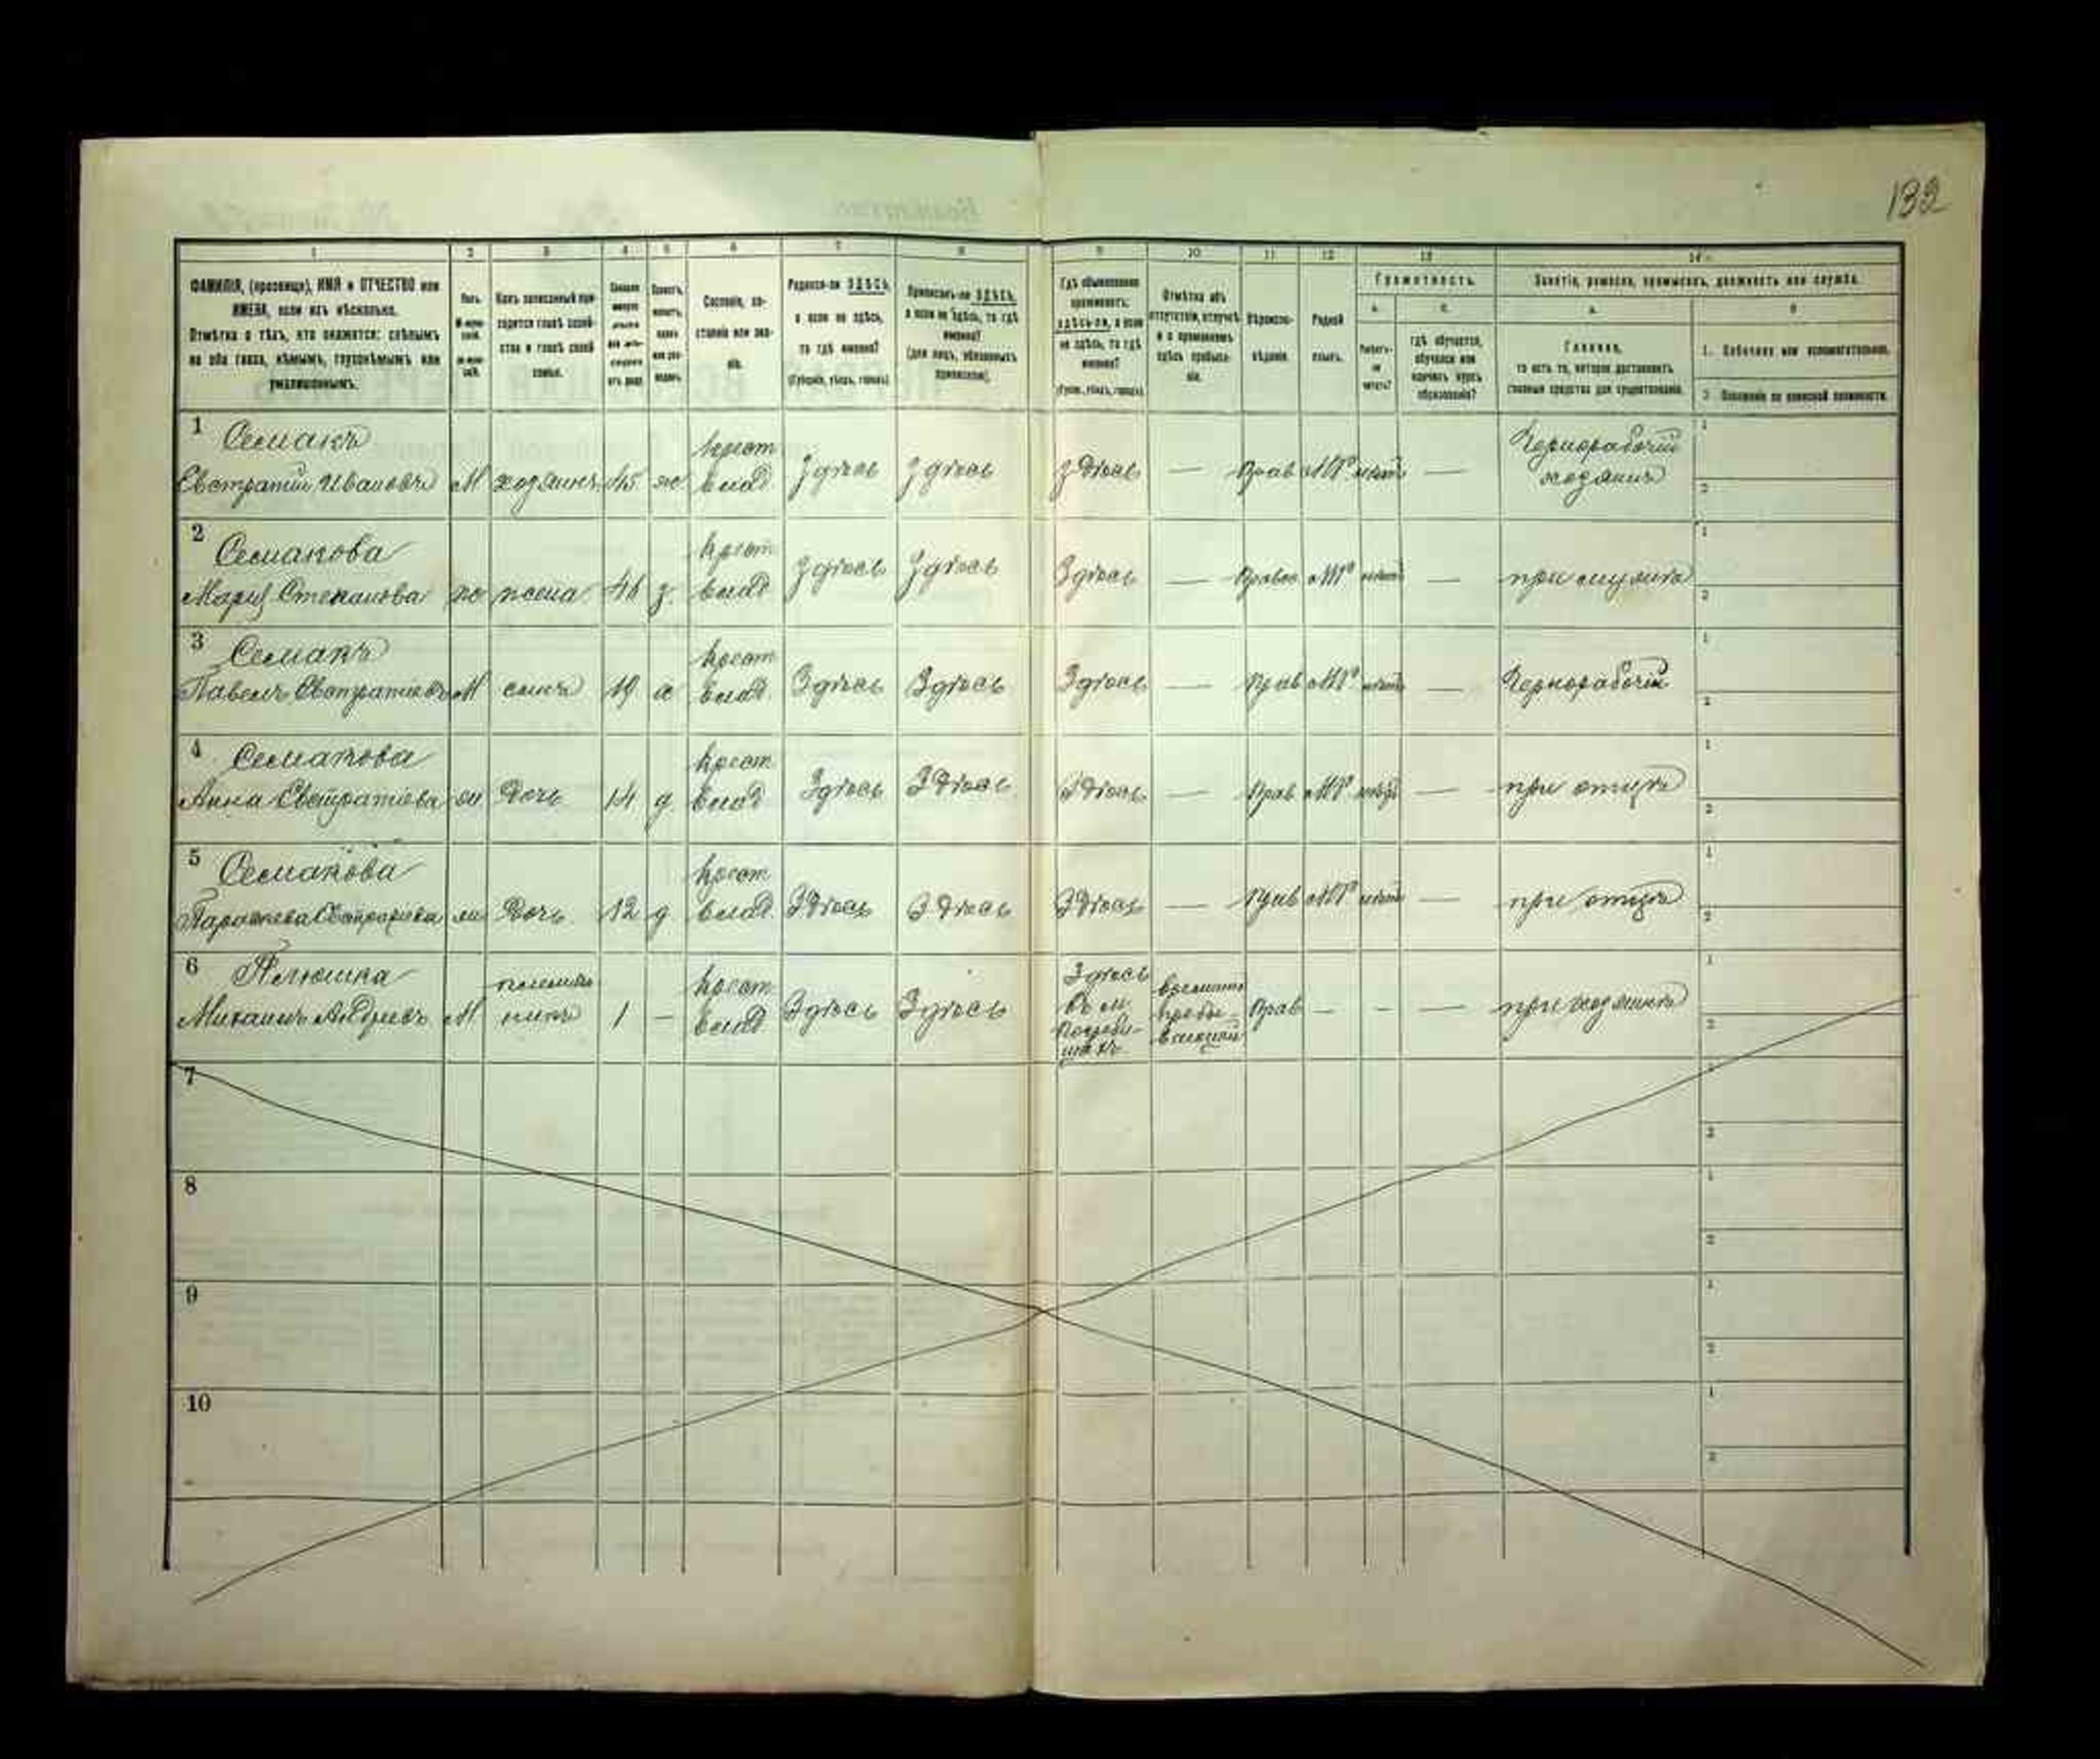 132
1 2 3 4 5 6 7 8 9 10 11 12 13 14
ФАМИЛІЯ, (прозвище), ИМЯ и ОТЧЕСТВО или
ИМЕНА, если ихъ нѣсколько.
Отмѣтка о тѣхъ, кто окажется: слѣпымъ
на оба глаза, нѣмымъ, глухонѣмымъ или
умалишеннымъ.
Полъ.
Какъ записанный при-
ходится главѣ хозяй-
ства и главѣ своей
семьи.
Сословіе, со-
стояніе или зва-
ніе.
Родился-ли ЗДѢСЬ,
а если не здѣсь,
то гдѣ именно?
(Губернія, уѣздъ, городъ).
Приписанъ-ли ЗДѢСЬ,
а если не здѣсь, то гдѣ
именно?
(для лицъ, обязанныхъ
припискою).
Гдѣ обыкновенно
проживаетъ:
здѣсь-ли, а если
не здѣсь, то гдѣ
именно?
(Губер., уѣздъ, городъ).
Отмѣтка объ
отсутствіи, отлучкѣ
и о временномъ
здѣсь пребыва-
ніи.
Вѣроиспо-
вѣданіе.
Родной
языкъ.
Грамотность.
а. б.
Умѣетъ-
ли
читать?
гдѣ обучается,
обучался или
кончилъ курсъ
образованія?
Занятіе, ремесло, промыселъ, должность или служба.
а. б.
Главное,
то есть то, которое доставляетъ
главныя средства для существованія.
1. Побочное или вспомогательное.
2. Положеніе по воинской повинности.
1 Семакъ
Евстратій Ивановъ М хозяинъ 45 ж крест влад здѣсь здѣсь здѣсь — Прав МР нѣтъ — Чернорабочій хозяинъ
2 Семакова
Марія Степанова ж жена 46 з. крест влад здѣсь здѣсь Здѣсь — Правос МР нѣтъ — при мужѣ
3 Семакъ
Павелъ Евстратіевъ М сынъ 19 х крест влад Здѣсь Здѣсь Здѣсь — Прав МР нѣтъ — Чернорабочій
4 Семакова
Анна Евстратіева ж Дочь 14 д крест влад Здѣсь Здѣсь Здѣсь — Прав МР — при отцѣ
5 Семакова
Параскева Евстратіева ж Дочь 12 д крест влад Здѣсь Здѣсь Здѣсь — Прав МР нѣтъ — при отцѣ
6 Илюшка
Михаилъ Андреевъ М племян никъ 1 — крест влад Здѣсь Здѣсь Здѣсь въ м. Прав — — — при хозяинѣ
7
8
9
10